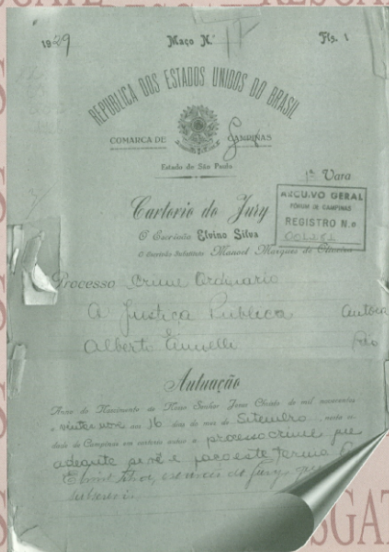 1929 Maço N.º 11 Fls. 1
REPUBLICA DOS ESTADOS UNIDOS DO BRASIL
COMARCA DE Campinas
Estado de São Paulo
1ª Vara
Cartorio do Jury
ARQUIVO GERAL
FÓRUM DE CAMPINAS
REGISTRO N.º
O Escrivão Elvino Silva
O Escrivão Substituto Manoel Marques de Oliveira
Processo Crime Ordinario
A Justiça Publica Autora
Alberto Réo
Autuação
Anno do Nascimento de Nosso Senhor Jesus Christo de mil novecentos
e vinte e nove aos 16 dias do mez de Setembro nesta ci-
dade de Campinas em cartorio autuo o processo crime que
adeante se vê e faço este termo Eu
Elvino Silva, escrivão do Jury, que
subscrevi.